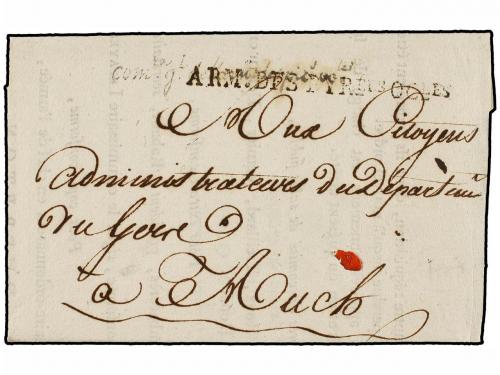 ARM. DES PYRÉES OCLES
Aux Citoyens
administrateurs du Départem
du Gers
a Auch